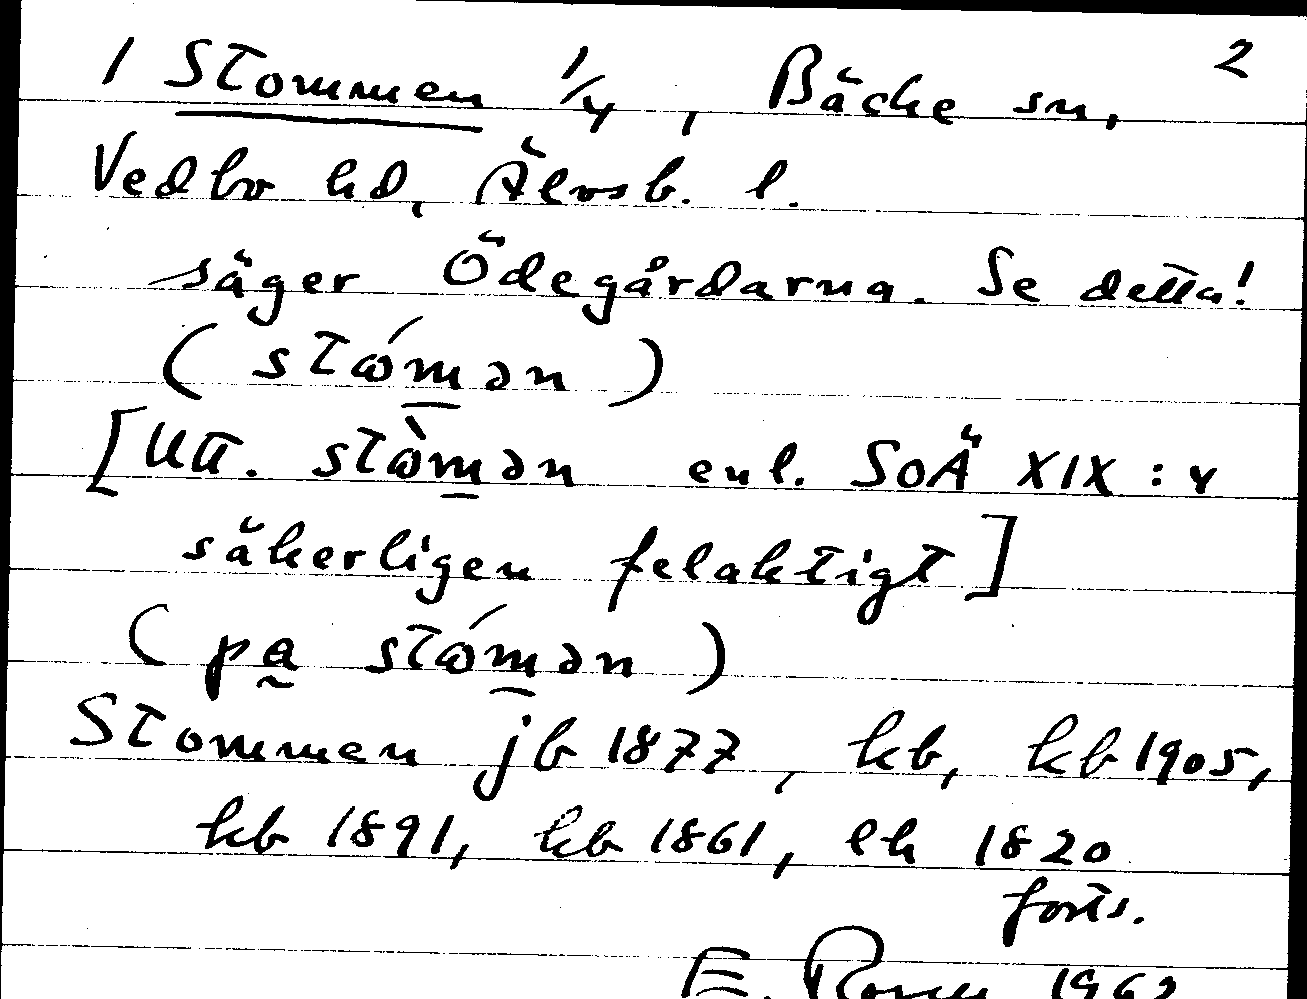 1 Stommen 1/4, Bäcke sn, 2
Vedbo hd, Älvsb. l.
säger Ödegårdarna. Se detta!
(stǿmən)
[Utt. stòmən enl. SOÄ XIX: v
säkerligen felaktigt]
(pa stǿmən)
Stommen jb 1877, kb, kb 1905,
kb 1891, kb 1861, ek 1820
forts.
E. 1962